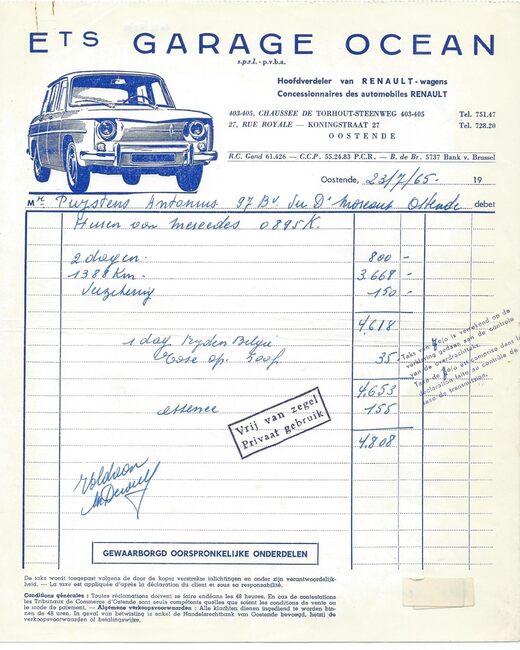 ETS GARAGE OCEAN
s.p.r.l. - p.v.b.a.
Hoofdverdeler van RENAULT-wagens
Concessionnaires des automobiles RENAULT
403-405, CHAUSSEE DE TORHOUT-STEENWEG 403-405 Tel. 751.47
27, RUE ROYALE — KONINGSTRAAT 27 Tel. 728.20
OOSTENDE
R.C. Gand 61.426 — C.C.P. 55.24.83 P.C.R. — B. de Br. 5737 Bank v. Brussel
Oostende, 23/7/65- 19
Mr Puystens Antonius 97 Bv. du Dr Moreaux Ostende debet
Huren van Mercedes 0895K.
2 dagen. 800 -
1388 Km. 3.668 -
Verzekering 150 -
4.618
1 dag Ryden België
Taxe op 500f 35 -
Taks van is verrekend op de
verklaring gedaan aan de controle
van de overdrachttaks.
Taxe de est comprise dans la
déclaration faite au contrôle de
taxe de transmission.
4.653
essence 155
4.808
Vrij van zegel
Privaat gebruik
Voldaan
GEWAARBORGD OORSPRONKELIJKE ONDERDELEN
De taks wordt toegepast volgens de door de koper verstrekte inlichtingen en onder zijn verantwoordelijk-
heid. — La taxe est appliquée d'après la déclaration du client et sous sa responsabilité.
Conditions générales : Toutes réclamations doivent se faire endéans les 48 heures. En cas de contestations
les Tribunaux de Commerce d'Ostende sont seuls compétents quelles que soient les conditions de vente ou
le mode de paiement. — Algemene verkoopsvoorwaarden : Alle klachten dienen ingediend te worden bin-
nen de 48 uren. In geval van betwisting is enkel de Handelsrechtbank van Oostende bevoegd, hetzij de
verkoopsvoorwaarden of betalingswijze.